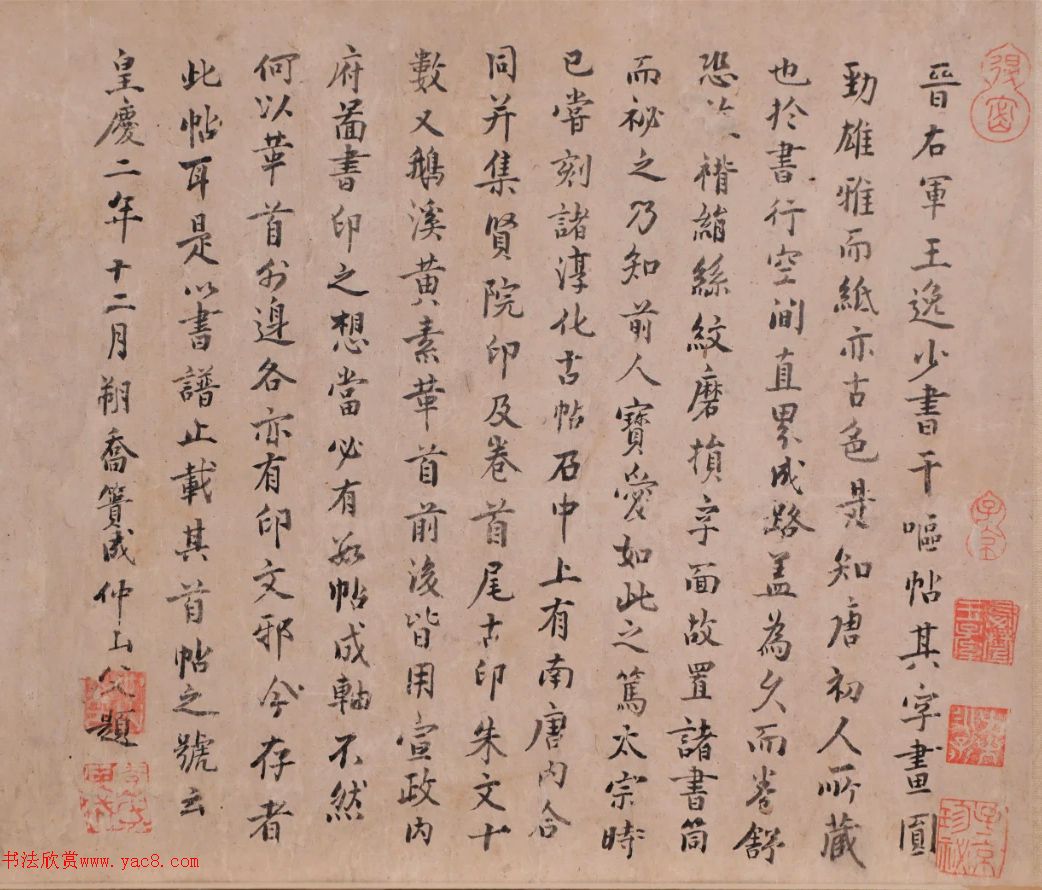 晉右軍王逸少書干嘔帖其字畫圓
勁雄雅而紙亦古色是知唐初人所藏
也於書行空間直界成路蓋為久而卷舒
恐 褙絹絲紋磨損字面故置諸書筒
而祕之乃知前人寶愛如此之篤太宗時
已嘗刻諸淳化古帖石中上有南唐內合
同并集賢院印及卷首尾古印朱文十
數又鵝溪黃素華首前後皆用宣政內
府圖書印之想當必有數帖成軸不然
何以華首外邊各亦有印文邪今存者
此帖耳是以書譜止載其首帖之號云
皇慶二年十二月朔喬簣成仲山父題
子京珍祕
书法欣赏www.yac8.com